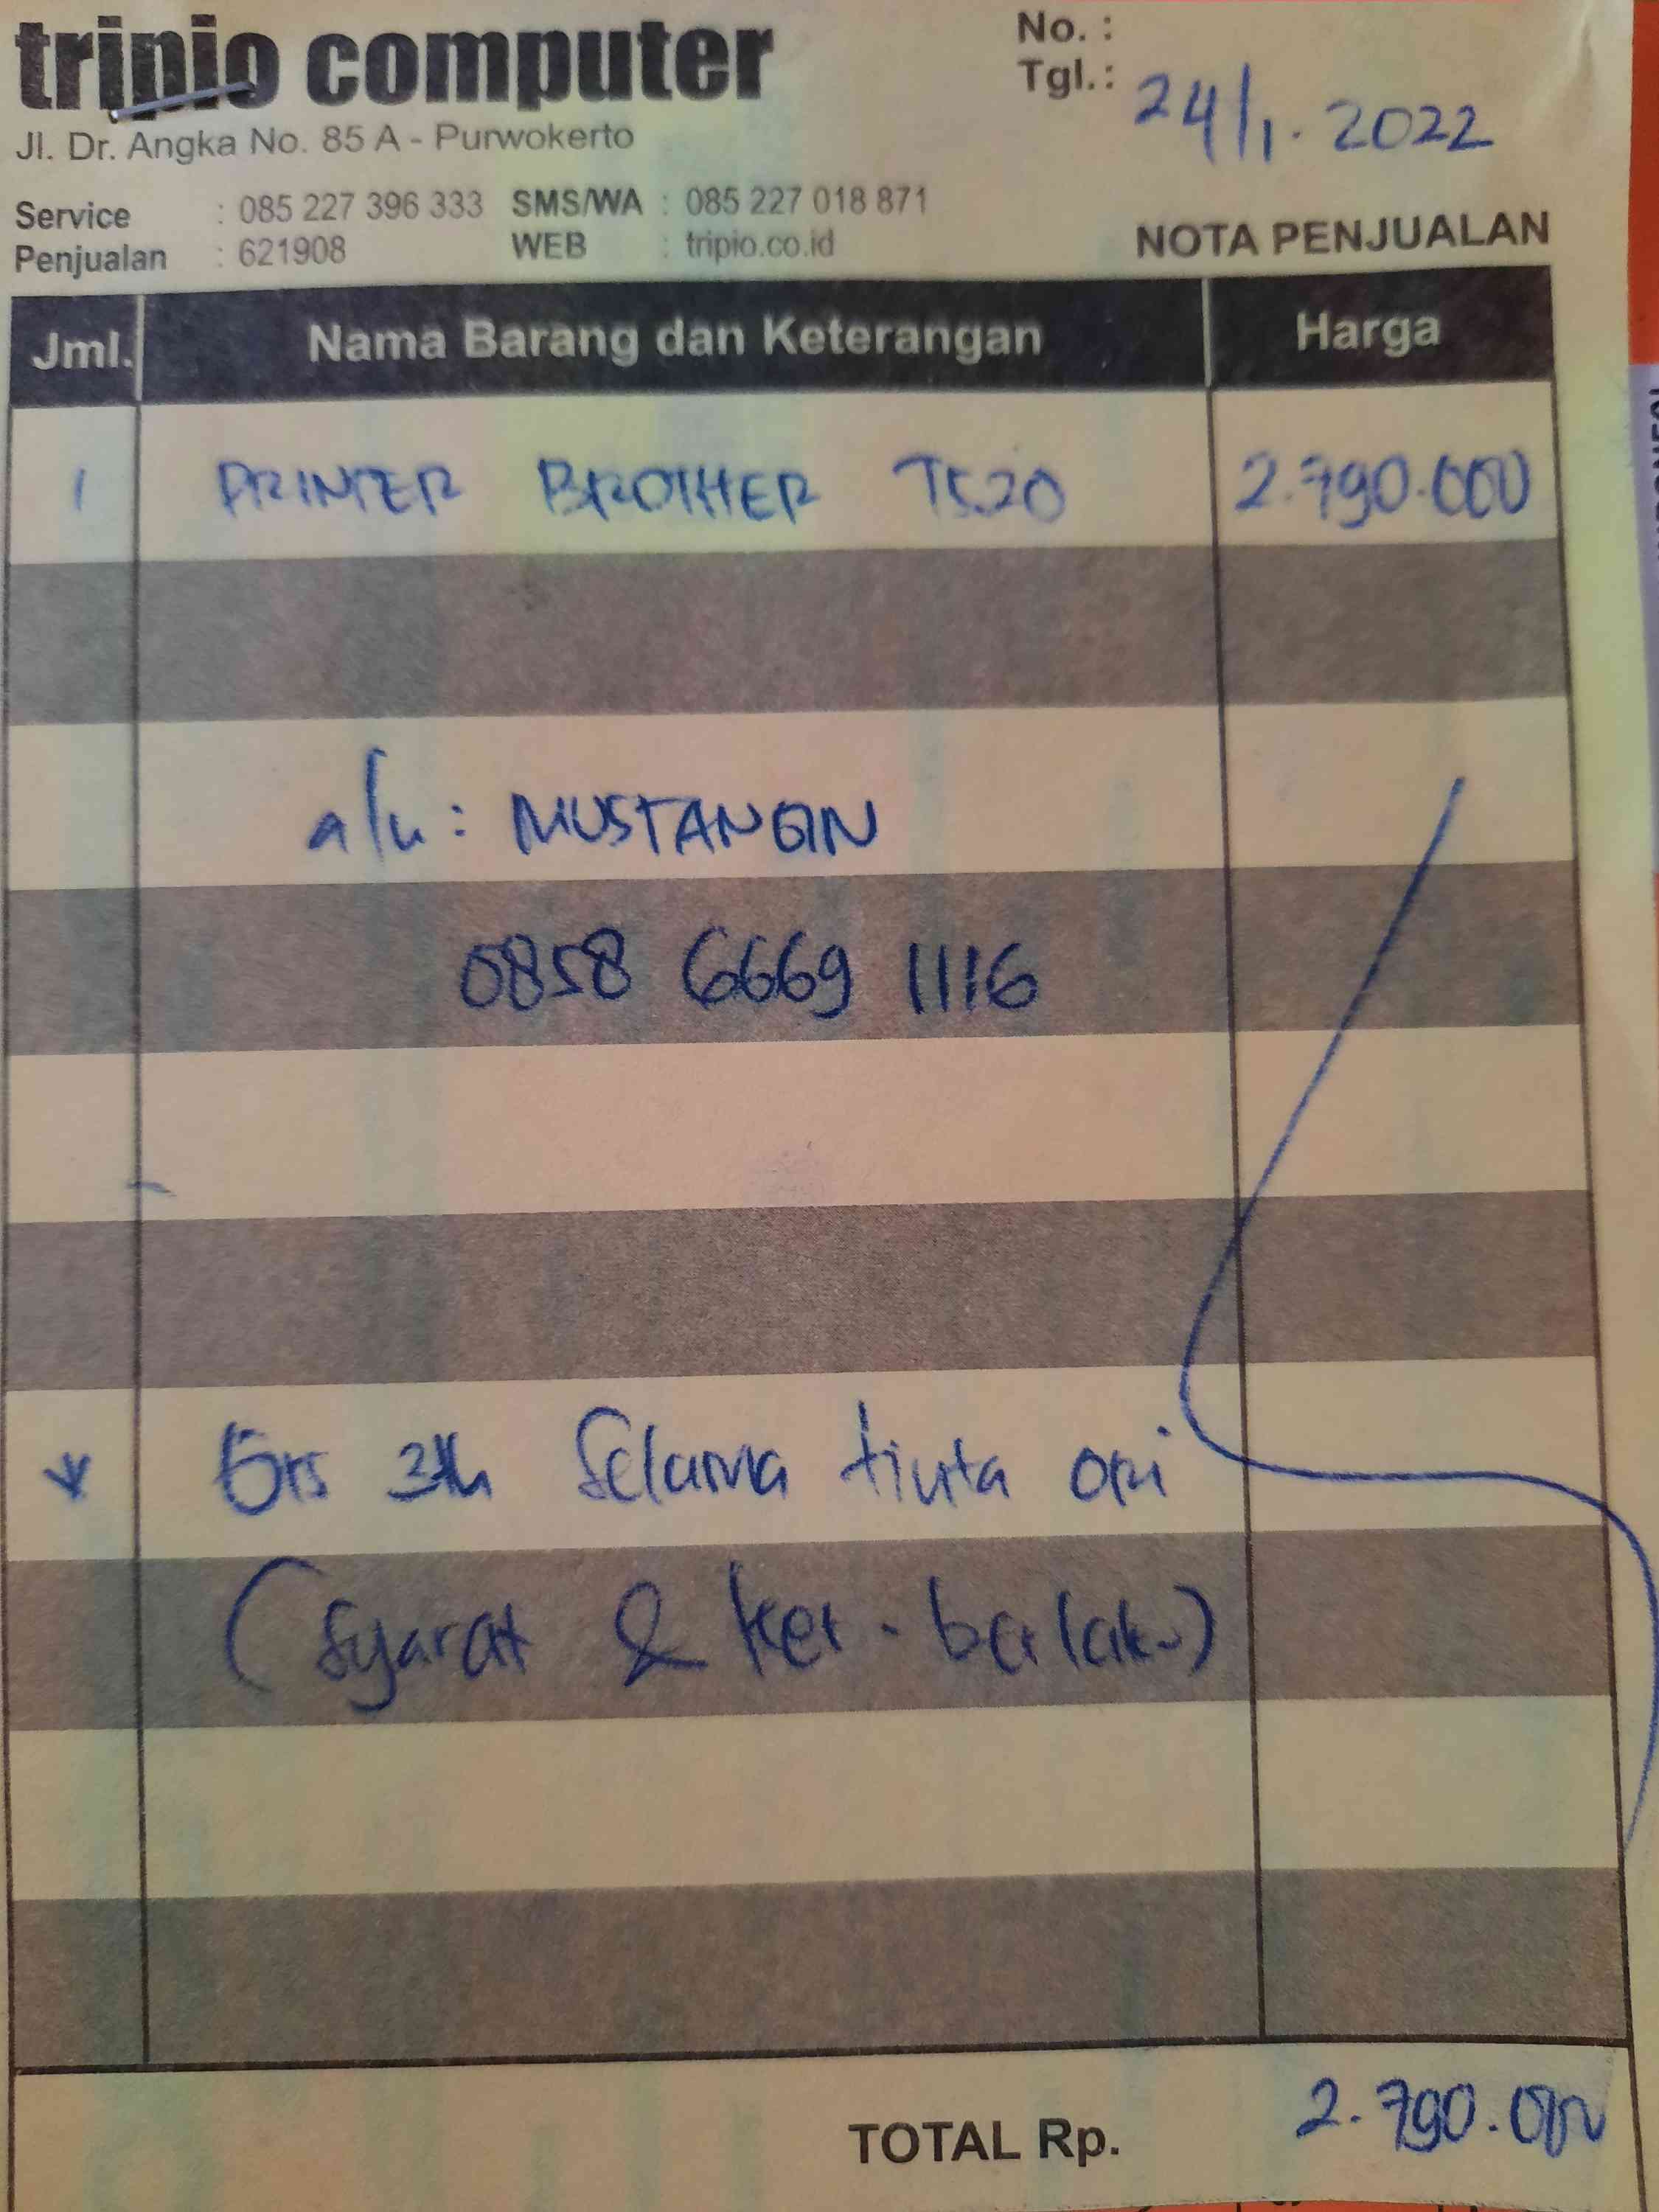 tripio computer
Jl. Dr. Angka No. 85 A - Purwokerto
Service : 085 227 396 333 SMS/WA : 085 227 018 871
Penjualan : 621908 WEB : tripio.co.id
No. :
Tgl.: 24/1. 2022
NOTA PENJUALAN
Jml. Nama Barang dan Keterangan Harga
1 PRINTER BROTHER T520 2.790.000
a/n : MUSTANGIN
0858 6669 1116
Grs 3th Selama tinta ori
(Syarat & ket. berlaku)
TOTAL Rp. 2.790.000